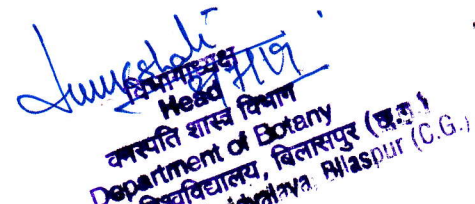 विभागाध्यक्ष
Head
वनस्पति शास्त्र विभाग
Department of Botany
विश्वविद्यालय, बिलासपुर (छ.ग.)
Bilaspur (C.G.)